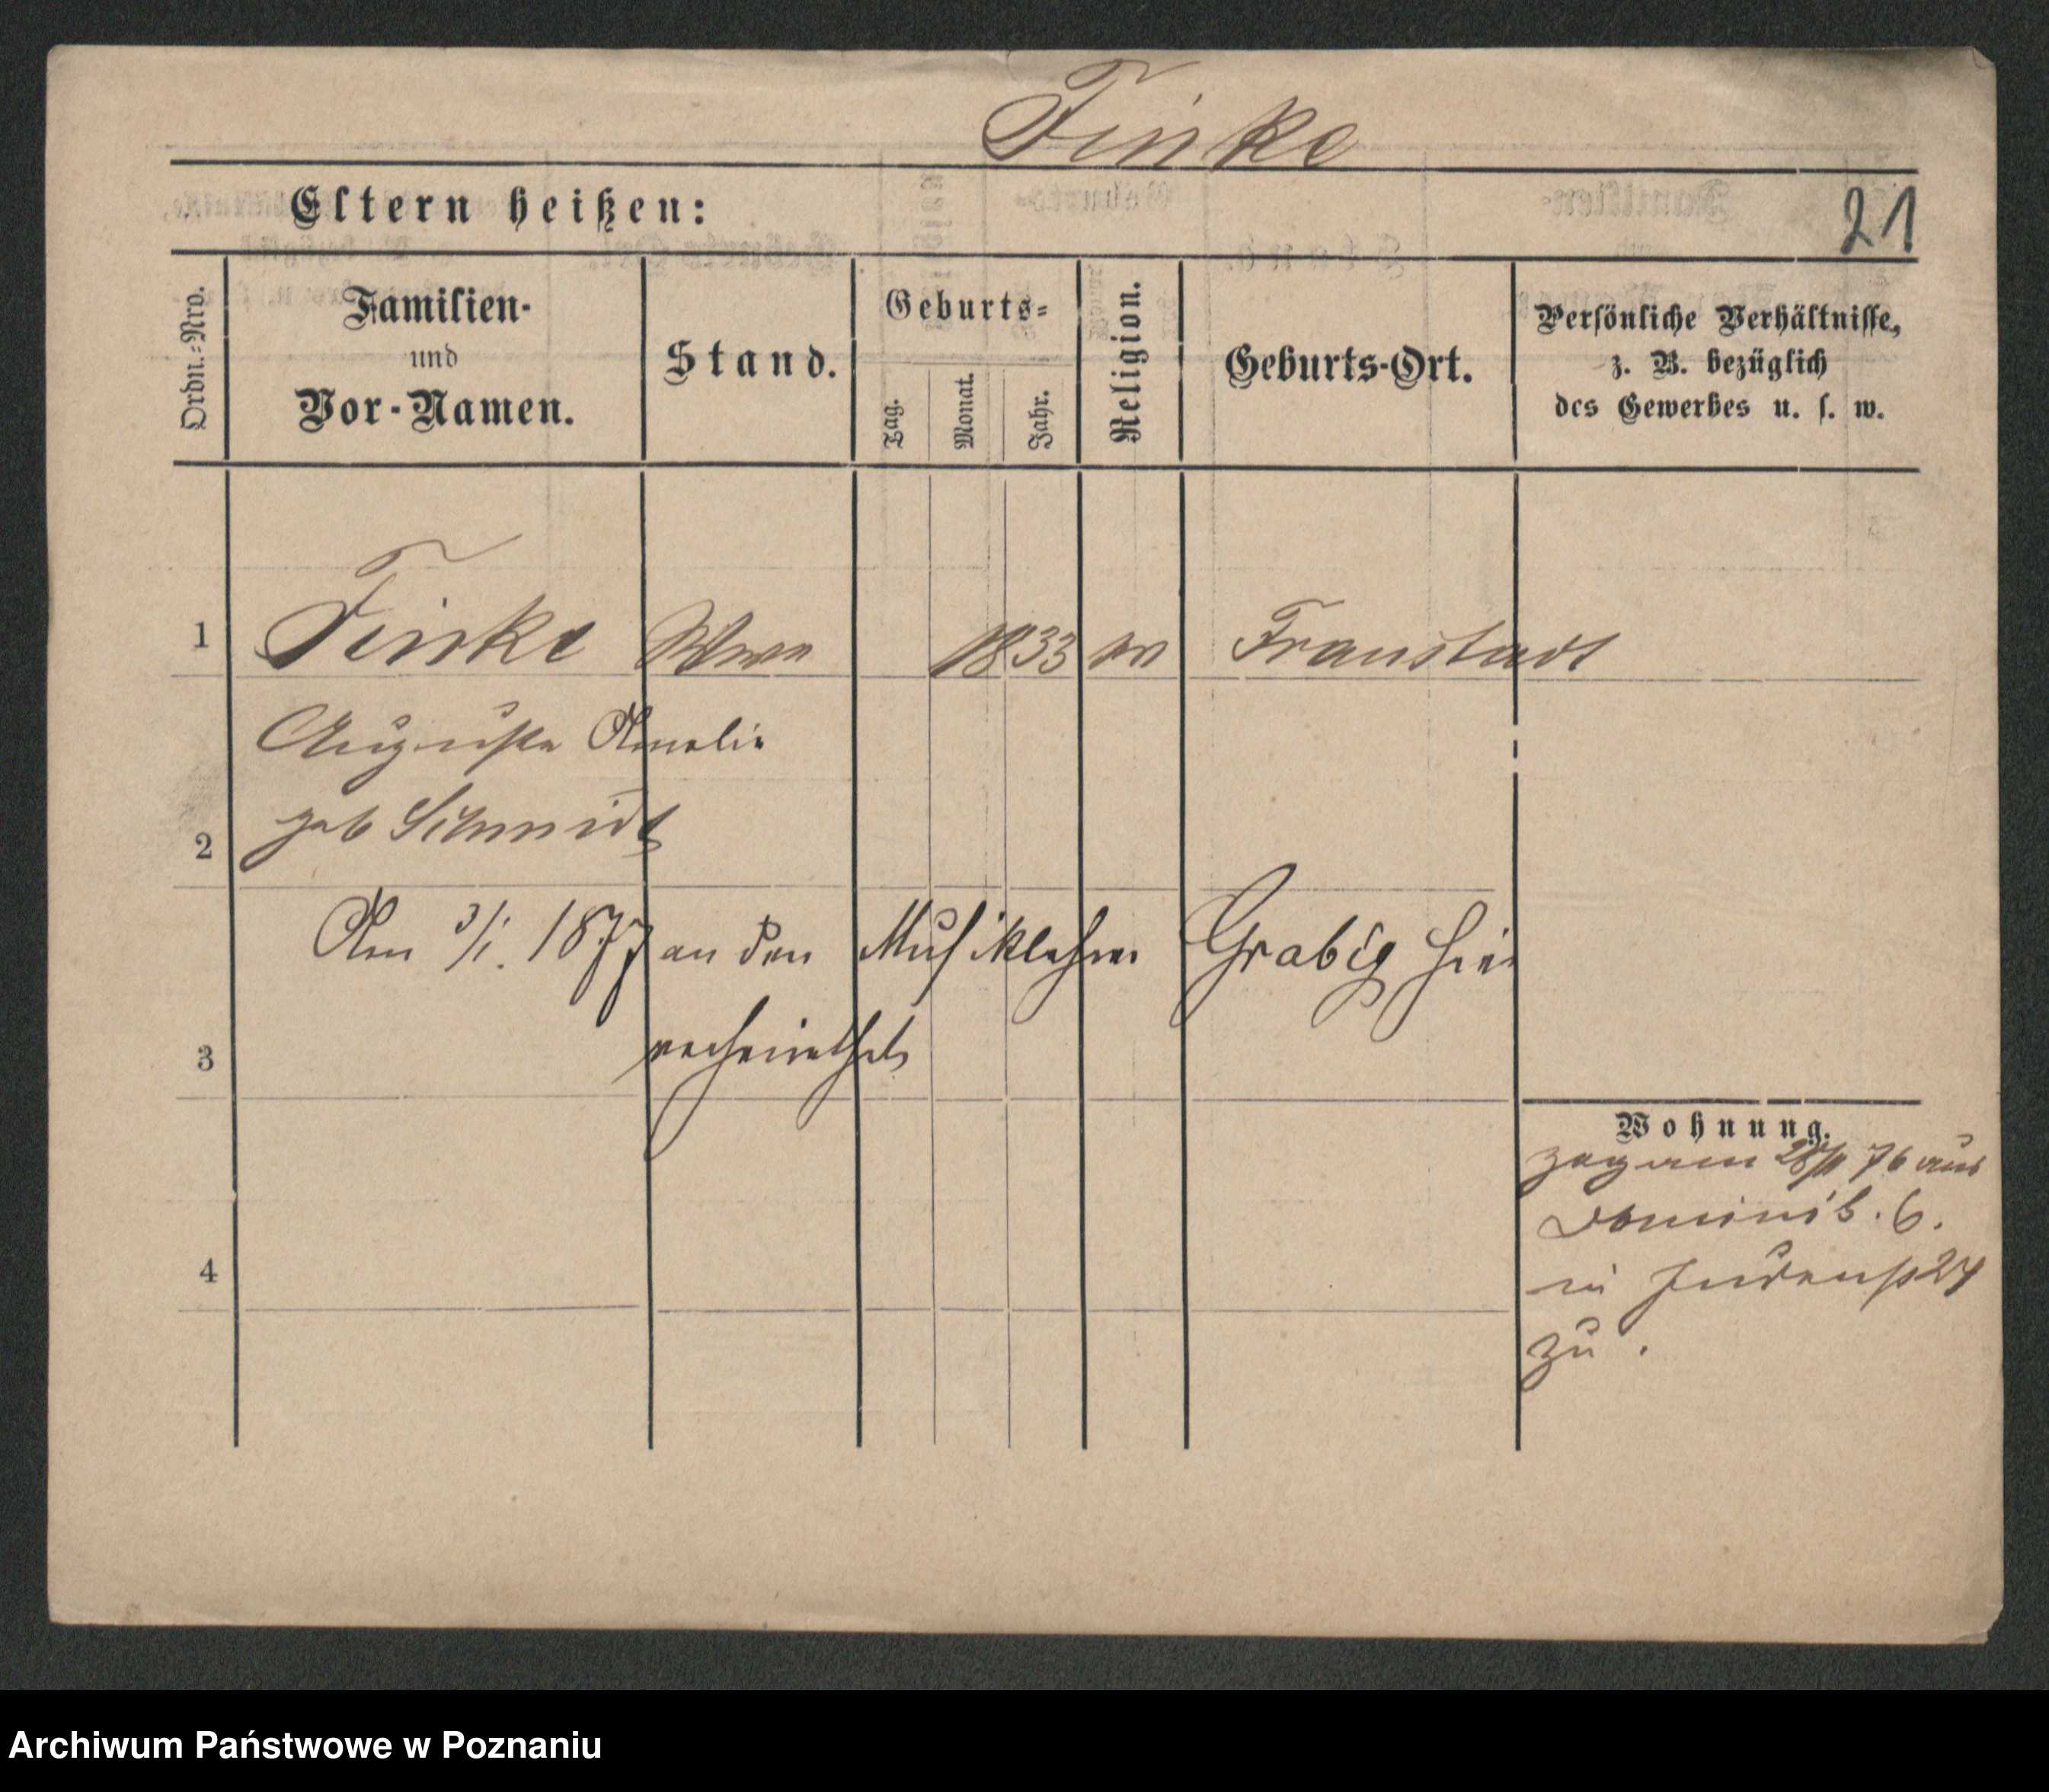 Finke
Eltern heißen:
21
Ordn.-Nro.
Familien-
und
Vor-Namen.
Stand.
Geburts-
Tag.
Monat.
Jahr.
Religion.
Geburts-Ort.
Persönliche Verhältnisse,
z. B. bezüglich
des Gewerbes u. s. w.
1 Finke Wwe 1833 ev Fraustadt
Auguste Amalie
2 geb Schmidt
Am 3/1. 1877 an den Musiklehrer Grabig hier
verheirathet
3
Wohnung.
zog am 76 aus
Dominik. 6.
in Judenstr 24
zu.
4
Archiwum Państwowe w Poznaniu